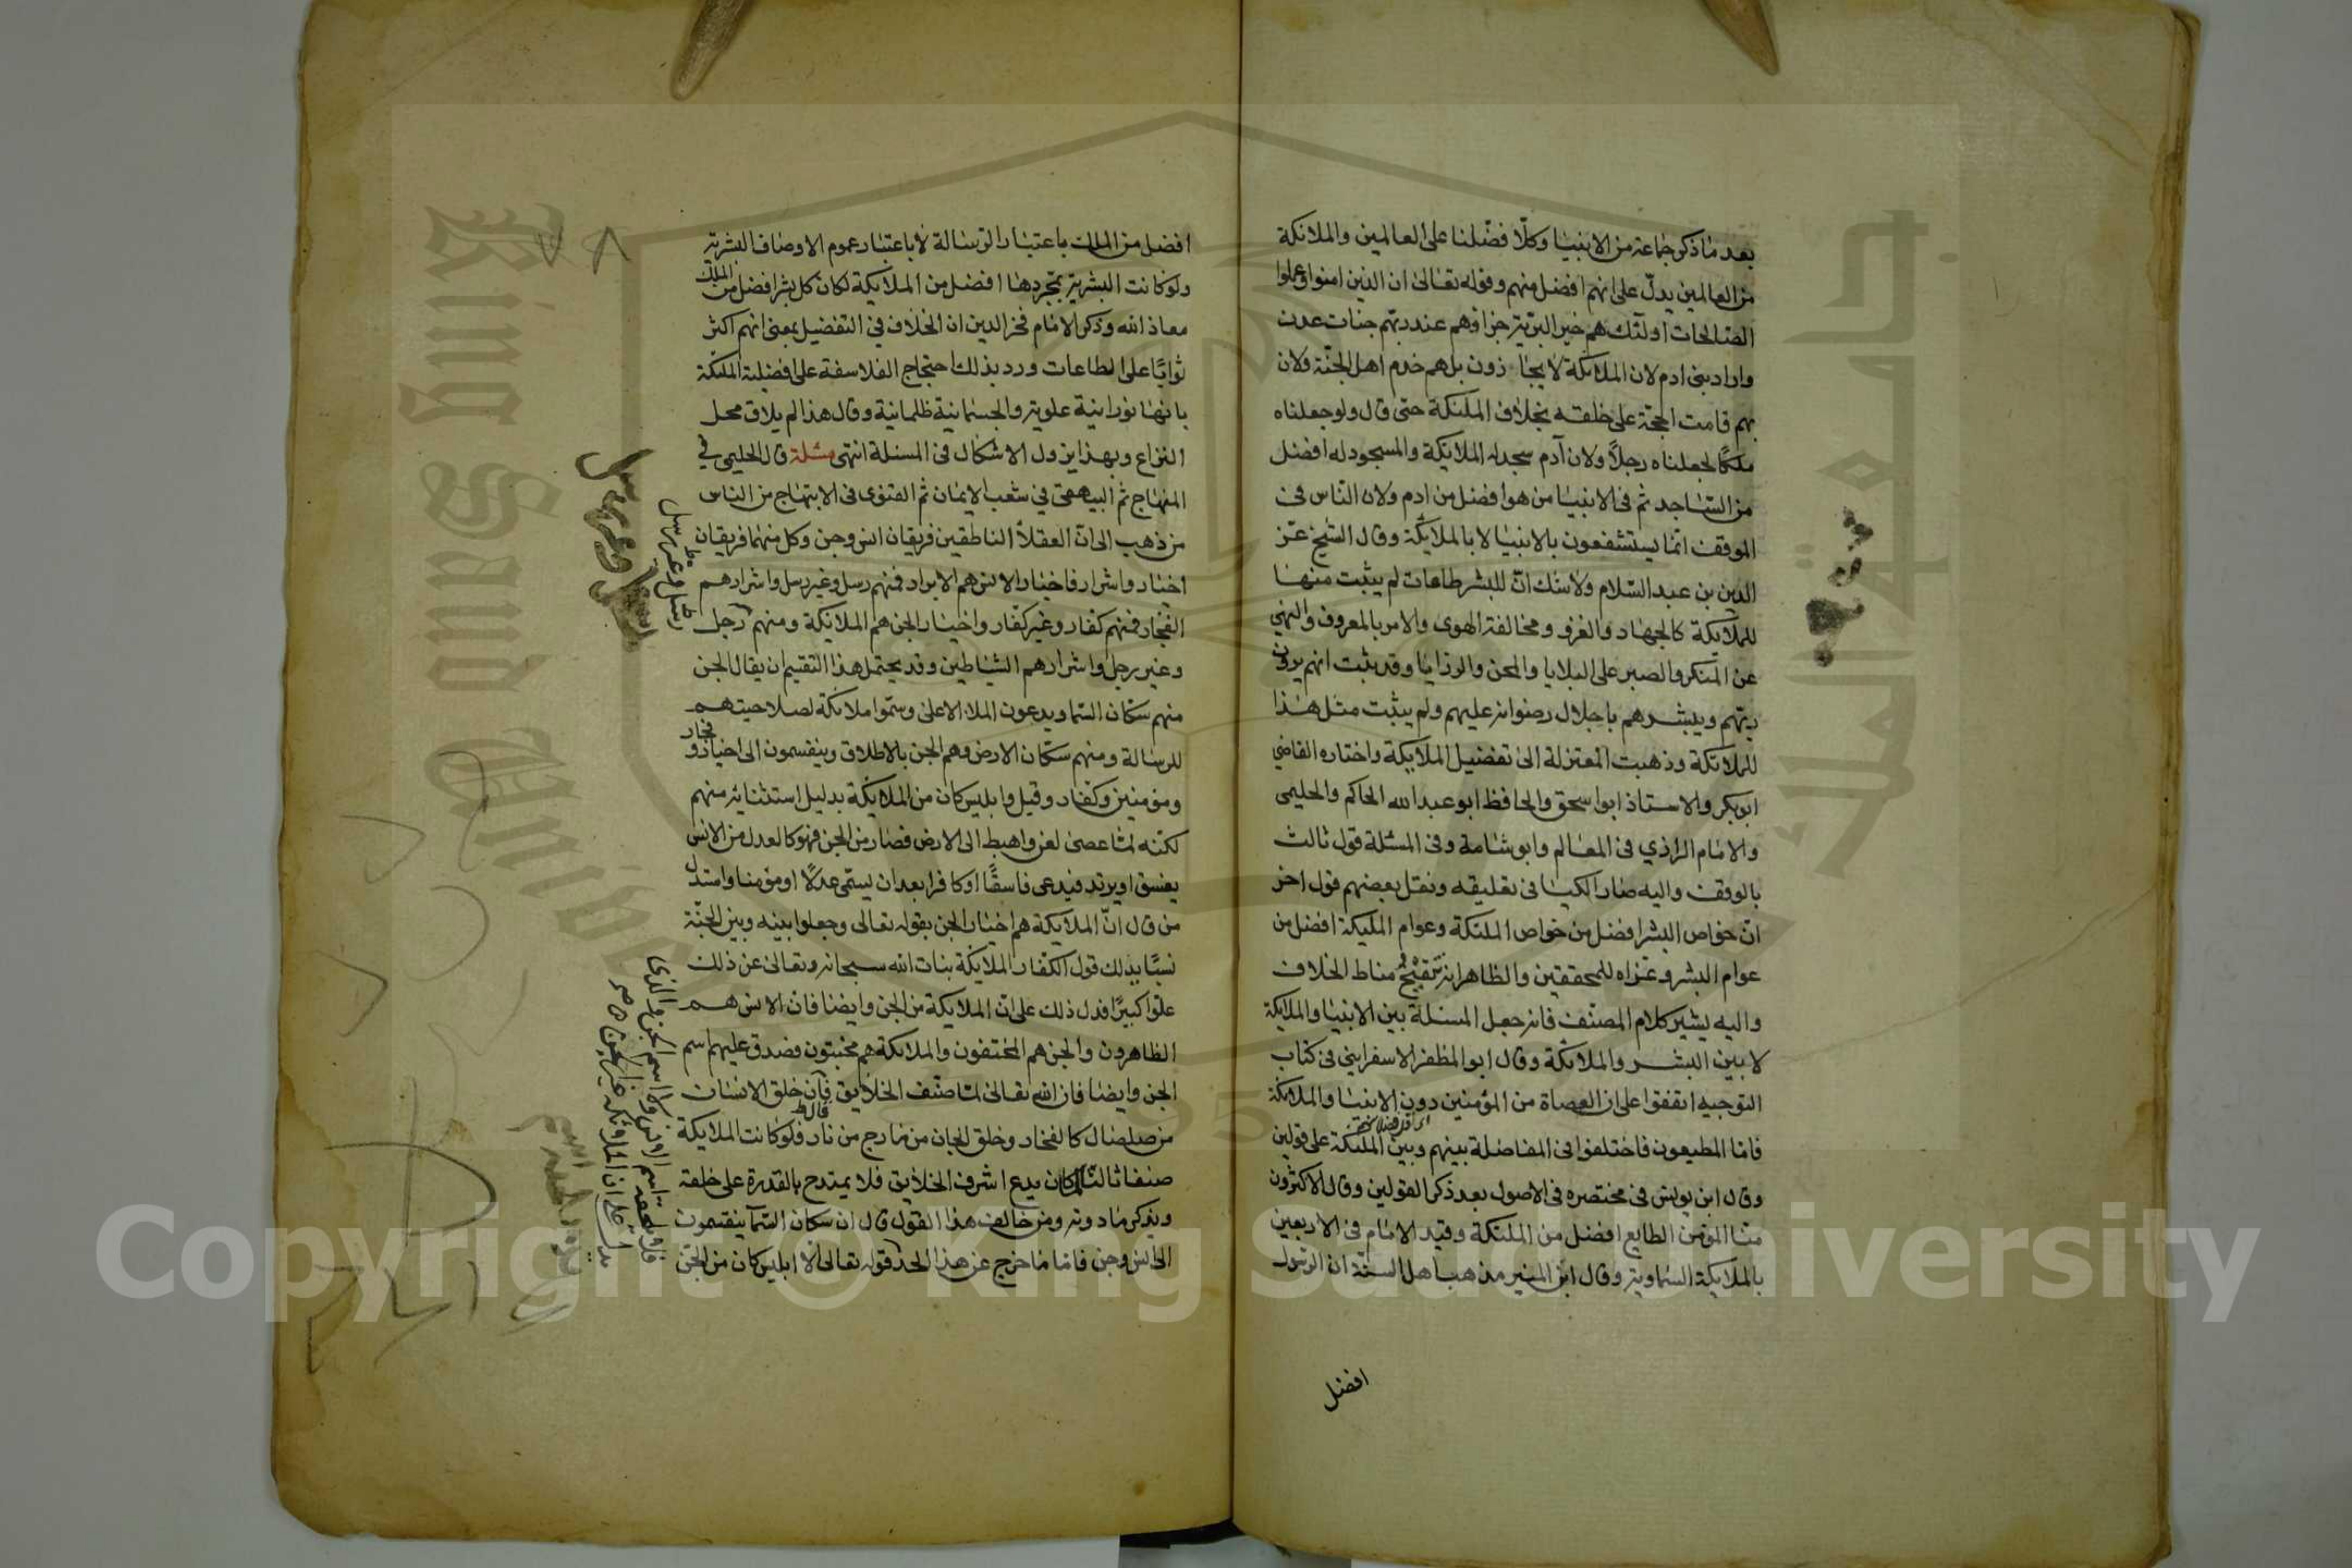 بعد ما ذكر جماعة من الانبيا وكلّا فضّلنا على العالمين والملائكة
من العالمين يدلّ على انهم افضل منهم وقوله تعالى ان الذين امنوا وعملوا
الصالحات اولئك هم خير البريّة جزاؤهم عند ربّهم جنات عدن
واراد بنى ادم لان الملائكة لا يجازون بل هم خدم اهل الجنّة ولان
بهم قامت الحجّة على خلقه بخلاف الملئكة حتى قال ولو جعلناه
ملكًا لجعلناه رجلًا ولان آدم سجد له الملائكة والمسجود له افضل
من السّاجد ثم فى الانبيا من هو افضل من ادم ولان النّاس فى
الموقف انما يستشفعون بالانبيا لا بالملائكة وقال الشيخ عزّ
الدين بن عبد السّلام ولا شك انّ للبشر طاعات لم يثبت منها
للملايكة كالجهاد والغزو ومخالفة الهوى والامر بالمعروف والنهي
عن المنكر والصبر على البلايا والمحن والرزايا وقد ثبت انهم يرون
ربّهم ويبشرهم باحلال رضوانه عليهم ولم يثبت مثل هذا
للملائكة وذهبت المعتزلة الى تفضيل الملايكة واختاره القاضي
ابو بكر والاستاذ ابو اسحق والحافظ ابو عبد الله الحاكم والحليمى
والامام الرازي فى المعالم وابو شامة وفى المسئلة قول ثالث
بالوقف واليه صار الكيا فى تعليقه ونقل بعضهم قول اخر
انّ خواص البشر افضل من خواص الملئكة وعوام المليكة افضل من
عوام البشر وعزاه للمحققين والظاهر انه تنقيح مناط الخلاف
واليه يشير كلام المصنّف فانه جعل المسئلة بين الانبيا والملايكة
لا بين البشر والملائكة وقال ابو المظفر الاسفراينى فى كتاب
التوجيه اتفقوا على ان العصاة من المؤمنين دون الانبيا والملائكة
فامّا المطيعون فاختلفوا فى المفاضلة بينهم وبين الملئكة على قولين
وقال ابن يونس فى مختصره فى الاصول بعد ذكر القولين وقال الاكثرون
منّا المؤمن الطايع افضل من الملئكة وقيّد الامام فى الاربعين
بالملايكة السّماوية وقال ابن المنير مذهب اهل السنّة ان الرسول
افضل
افضل من الملك باعتبار الرّسالة لا باعتبار عموم الاوصاف البشرية
ولو كانت البشرية بمجردها افضل من الملايكة لكان كل بشر افضل من الملك
معاذ الله وذكر الامام فخر الدين ان الخلاف في التفضيل بمعنى انهم اكثر
ثوابًا على الطاعات ورد بذلك احتجاج الفلاسفة على افضلية الملئكة
بانها نورانية علوية والجسمانية ظلمانية وقال هذا لم يلاق محل
النزاع وبهذا يزول الاشكال فى المسئلة انتهى مسئلة قال الحليمى في
المنهاج ثم البيهقى في شعب الايمان ثم القونوى فى الابتهاج من الناس
من ذهب الى انّ العقلا الناطقين فريقان انس وجن وكل منهما فريقان
اخيار واشرار فاخيار الانس هم الابرار فمنهم رسل وغير رسل واشرارهم
الفجّار فمنهم كفار وغير كفّار واخيار الجن هم الملايكة ومنهم رجل
وغير رجل واشرارهم الشياطين وقد يحتمل هذا التقسيم ان يقال الجن
منهم سكّان السّما ويدعون الملا الاعلى وسمّوا ملائكة لصلاحيتهم
للرسالة ومنهم سكّان الارض وهم الجن بالاطلاق وينقسمون الى اخيار وفجار
ومؤمنين وكفار وقيل وابليس كان من الملائكة بدليل استثنائه منهم
لكنه لمّا عصى لعن واهبط الى الارض فصار من الجن فهو كالعدل من الانس
يفسق او يرتد فيدعى فاسقًا او كافرا بعد ان يسمّى عدلًا او مؤمنا واستدل
من قال انّ الملايكة هم اخيار الجن بقوله تعالى وجعلوا بينه وبين الجنّة
نسبًا يدلك قول الكفّار الملايكة بنات الله سبحانه وتعالى عن ذلك
علوّا كبيرًا فدل ذلك على انّ الملايكة من الجن وايضا فان الانس هم
الظاهرون والجن هم المختفون والملائكة هم مختبون فصدق عليهم اسم
الجن وايضا فان الله تعالى لمّا صنّف الخلايق قال خلق الانسان
من صلصال كالفخار وخلق الجان من مارج من نار فلو كانت الملايكة
صنفا ثالثا لما كان يدع اشرف الخلايق فلا يمتدح بالقدرة على خلقه
ويذكر ما دونه ومن خالف هذا القول قال ان سكان السّما ينقسمون
الى انس وجن فامّا ما خرج عن هذا الحد قوله تعالى الّا ابليس كان من الجن